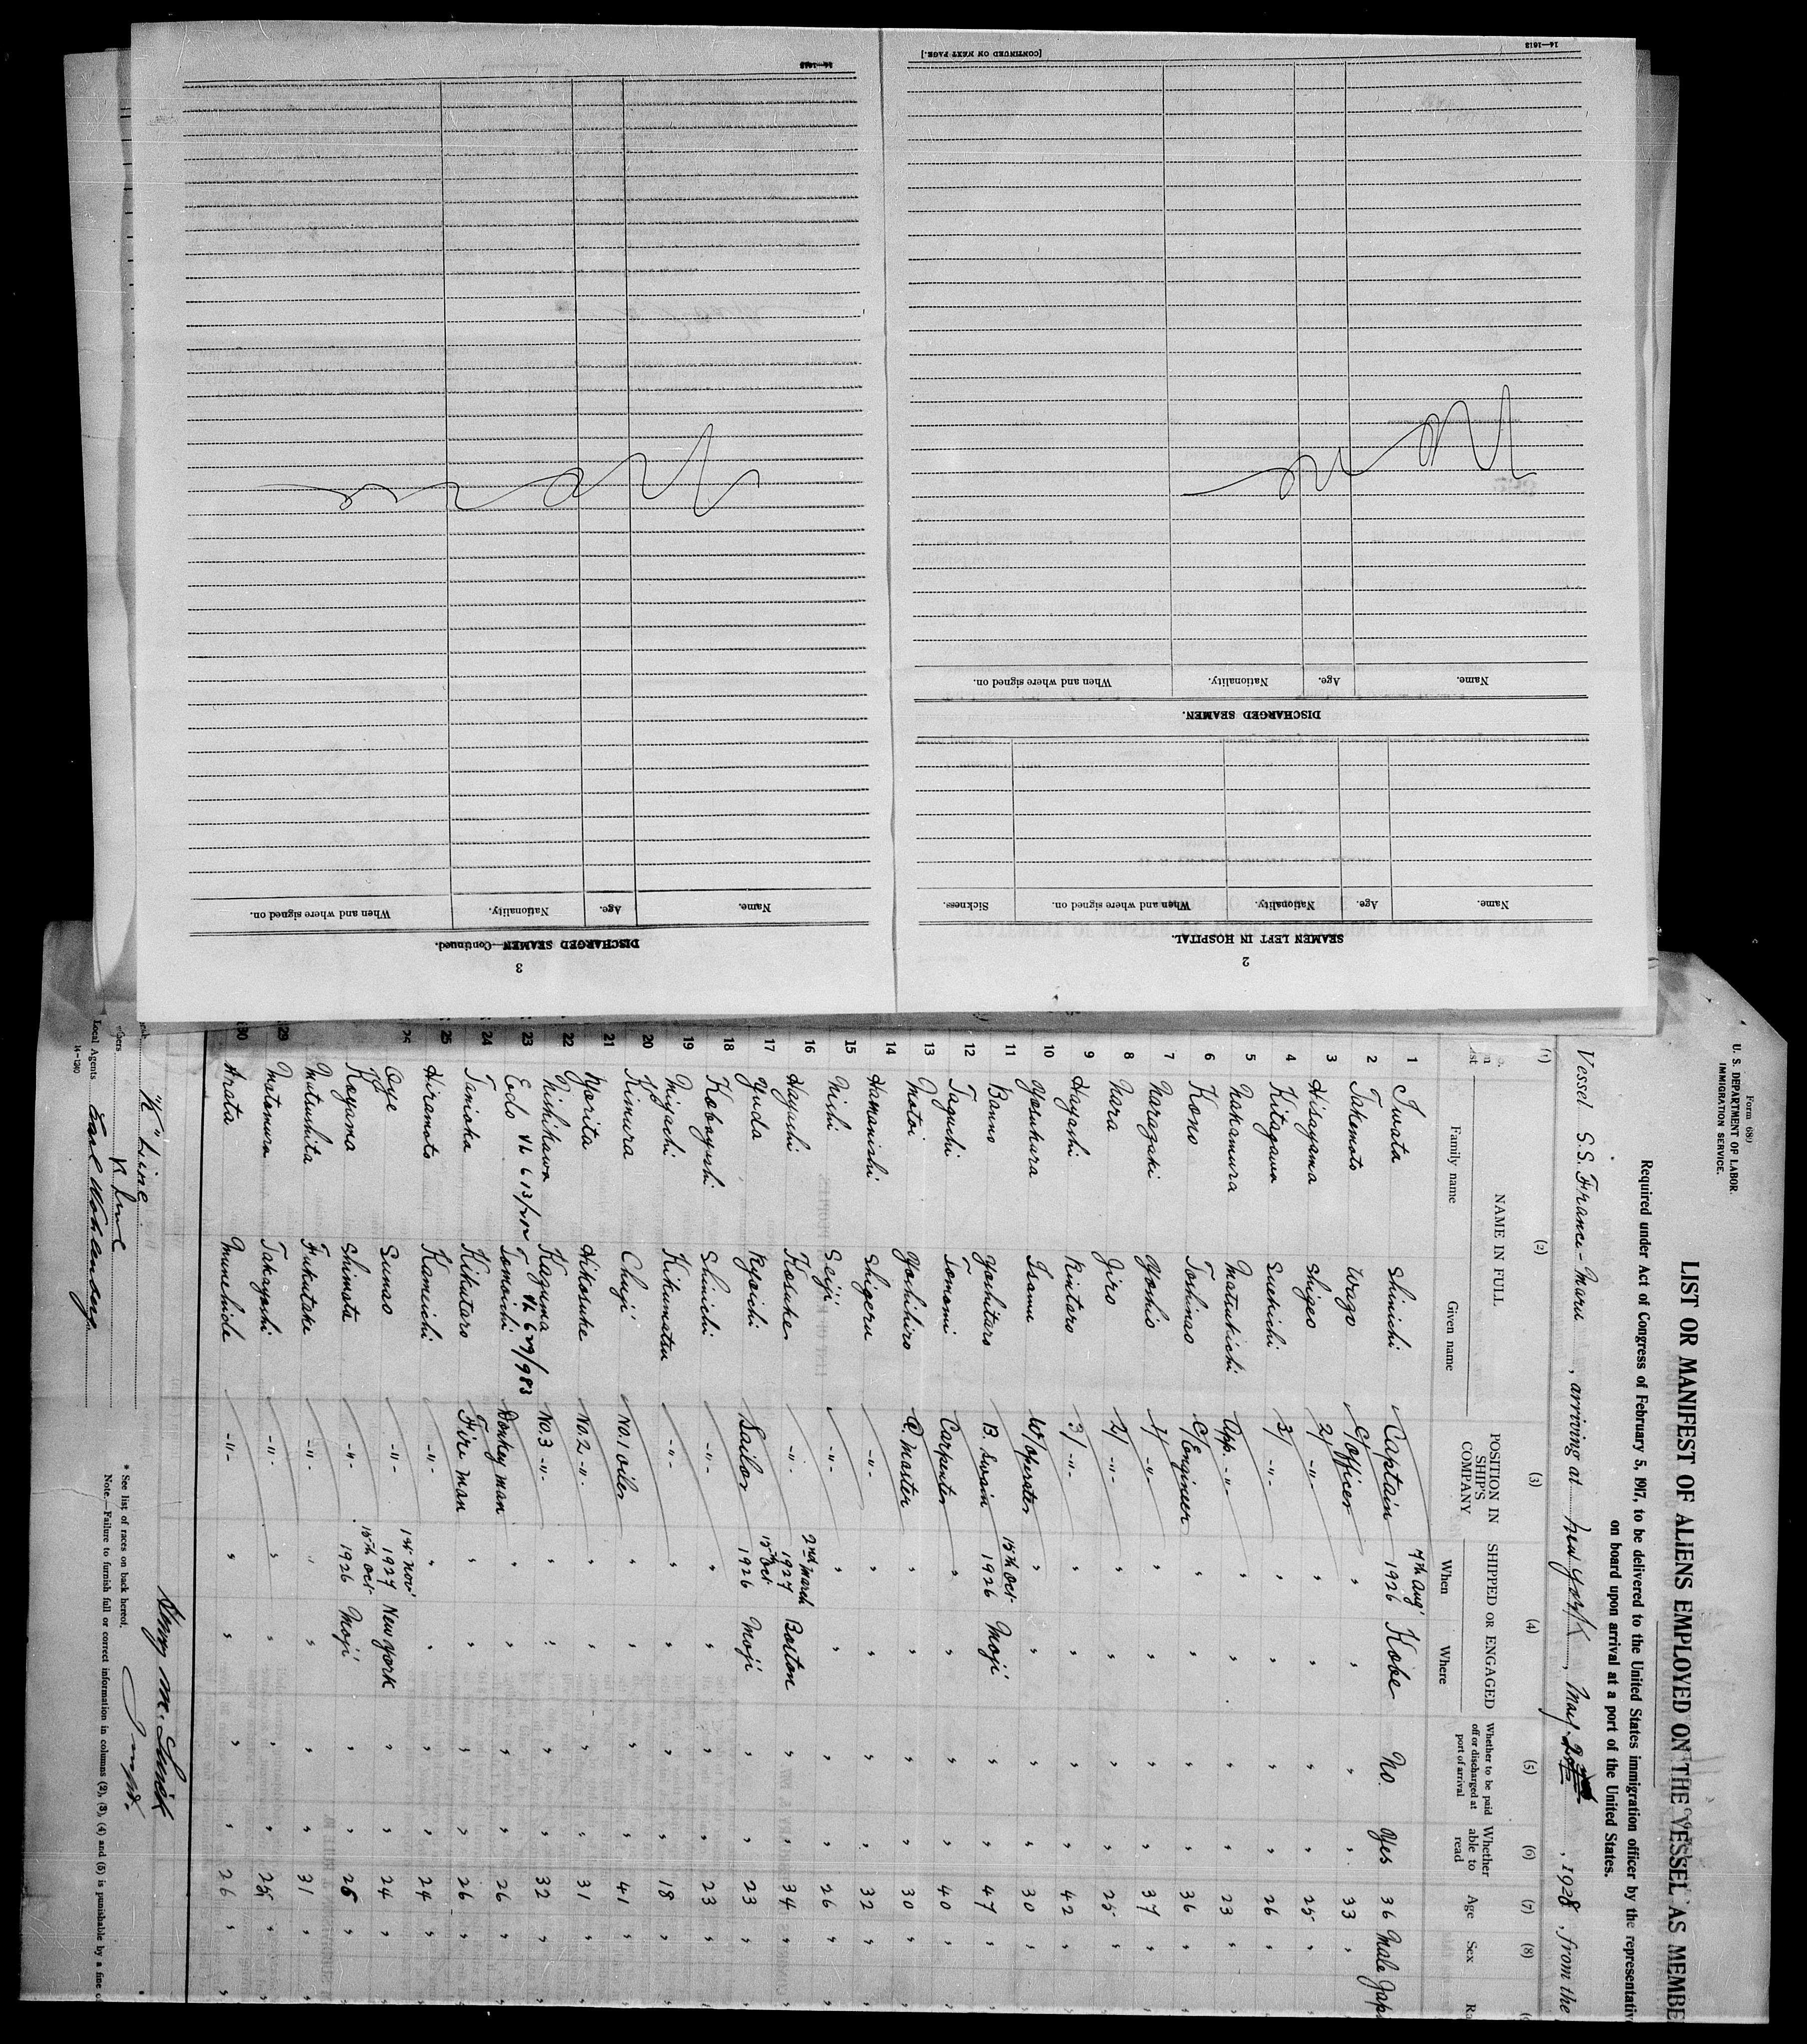 14—1613
[CONTINUED ON NEXT PAGE.]
Name. Age. Nationality. When and where signed on.
DISCHARGED SEAMEN.
Name. Age. Nationality. When and where signed on. Sickness.
SEAMEN LEFT IN HOSPITAL.
2
14—1613
None
Name. Age. Nationality. When and where signed on.
DISCHARGED SEAMEN—Continued.
3
Form 680
U. S. DEPARTMENT OF LABOR
IMMIGRATION SERVICE.
LIST OR MANIFEST OF ALIENS EMPLOYED ON THE VESSEL AS MEMBE
Required under Act of Congress of February 5, 1917, to be delivered to the United States immigration officer by the representativ
on board upon arrival at a port of the United States.
Vessel S.S. France-Maru, arriving at New York, May, 1928, from the
(1) (2) (3) (4) (5) (6) (7) (8)
NAME IN FULL POSITION IN SHIP'S COMPANY SHIPPED OR ENGAGED Whether to be paid off or discharged at port of arrival Whether able to read Age Sex Ra
Family name Given name When Where
1 Iwata Shinichi Captain 7th Aug' 1926 Kobe No. Yes 36 Male Jap
2 Takemoto Wago C/Officer " " " " 33 "
3 Hisayama Shigeo 2/ -"- " " " " 25 "
4 Kitagawa Suekichi 3/ -"- " " " " 26 "
5 Nakamura Matsukichi App. -"- " " " " 23 "
6 Kono Toshinao C/Engineer " " " " 36 "
7 Naragaki Yoshio 1/ -"- " " " " 37 "
8 Nara Jiro 2/ -"- " " " " 25 "
9 Hayashi Kintaro 3/ -"- " " " " 42 "
10 Yosukura Isamu W/operator " " " " 30 "
11 Banno Yoshitaro B. Swain 15th Oct. 1926 Moji " " 47 "
12 Taguchi Tomomi Carpenter " " " " 40 "
13 Motoi Yoshihiro Q. Master " " " " 30 "
14 Hamanishi Shigeru -"- " " " " 32 "
15 Nishi Seiji -"- " " " " 26 "
16 Hayashi Kosuke -"- 2nd March 1927 Boston " " 34 "
17 Yuda Ryoichi Sailor 15th Oct. 1926 Moji " " 23 "
18 Kobayashi Shinichi -"- " " " " 23 "
19 Miyachi Kikumatsu -"- " " " " 18 "
20 Kimura Chuji No. 1 oiler " " " " 41 "
21 Morita Hikosuke No. 2 -"- " " " " 31 "
22 Nishikawa Kazuma No. 3 -"- " " " " 32 "
23 Endo Tomoichi Donkey man " " " " 26 "
24 Tanioka Kikutaro Fire man " " " " 26 "
25 Hiramoto Kameichi -"- " " " " 24 "
26 Oye Sunao -"- 1st Nov' 1927 New York " " 24 "
Koyama Shimata -"- 15th Oct. 1926 Moji " " 25 "
Mutsushita Fukutake -"- " " " " 31 "
29 Motomura Takayoshi -"- " " " " 25 "
30 Arata Munehide -"- " " " " 26 "
"K" Line
K Line
Local Agents
14—1240
* See list of races on back hereof.
Note.—Failure to furnish full or correct information in columns (2), (3), (4) and (5) is punishable by a fine o